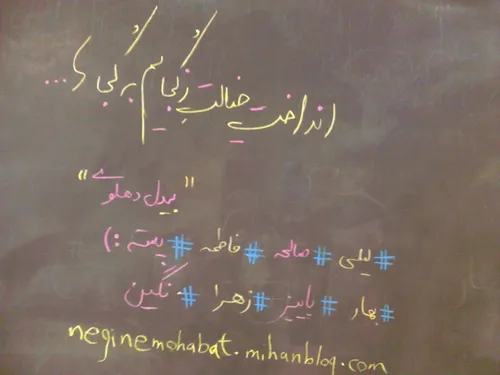 انداخت خیالت ز کجایم به کجاها...
"بیدل دهلوے"
#لیلی #صالحه #فاطمه #پسته :)
#بهار #پاییز #زهرا #نگین
neginemohabat.mihanblog.com